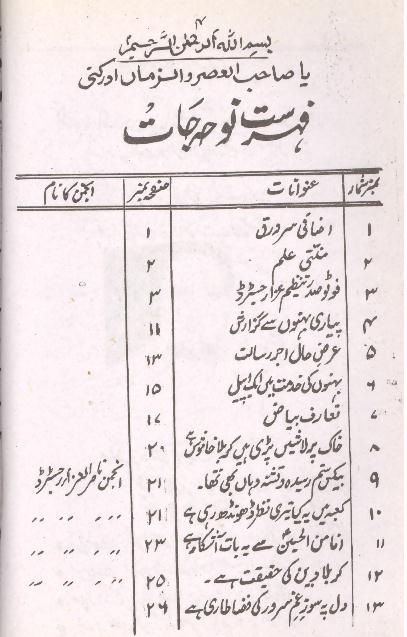 ۴
بسم اللہ الرحمٰن الرحیم
یا صاحب العصر والزماں ادرکنی
فہرست نوحہ جات
نمبر شمار عنوانات صفحہ نمبر انجمن کا نام
۱ اضافی سرورق ۱
۲ منتی علم ۲
۳ فوٹو صدر تنظیم عزا رجسٹرڈ ۳
۴ پیاری بہنوں سے گزارش ۱۱
۵ عرض حال اجر رسالت ۱۳
۶ بہنوں کی خدمت میں اک اپیل ۱۵
۷ تعارف بیاض ۱۷
۸ خاک پر لاشیں پڑی ہیں کربلا خاموش ہے ۲۰
۹ بیکس ستم رسیدہ و تشنہ دہاں بھی تھا۔ ۲۱ انجمن ناصر العزا رجسٹرڈ
۱۰ کعبہ میں یہ کیا تیری نظر ڈھونڈھ رہی ہے ۲۱ ٫٫ ٫٫ ٫٫
۱۱ انا من الحسینؑ سے یہ بات آشکار ہے ۲۳ ٫٫ ٫٫ ٫٫
۱۲ کربلا دین کی حقیقت ہے۔ ۲۵ ٫٫ ٫٫ ٫٫
۱۳ دل پہ سوز غم سرور کی فضا طاری ہے ۲۶